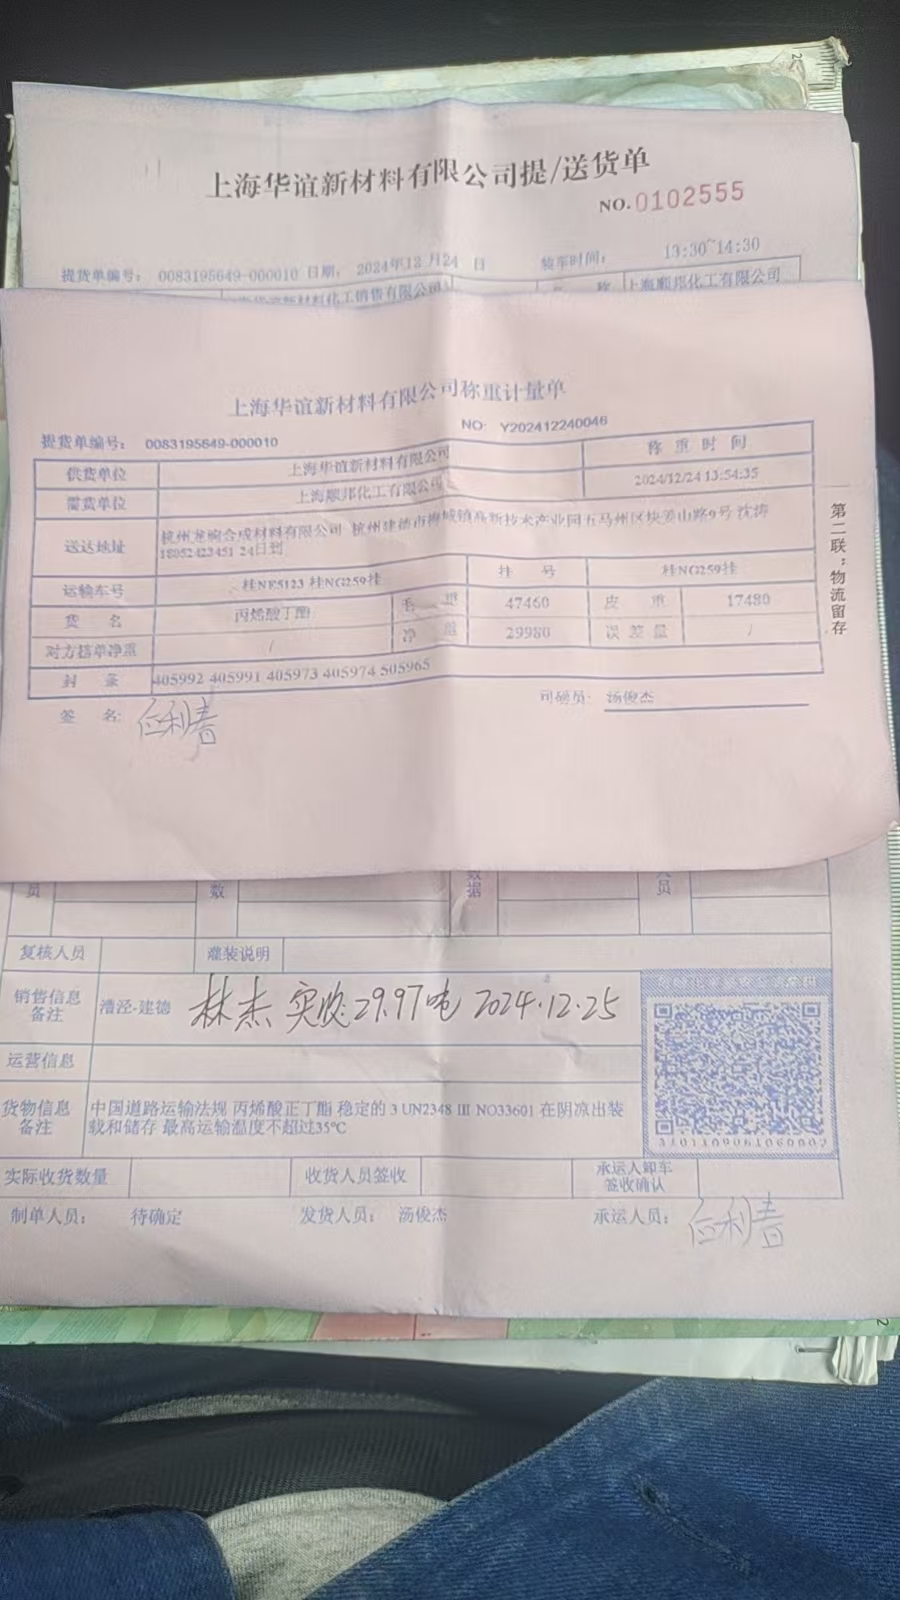 上海华谊新材料有限公司提/送货单
NO.0102555
提货单编号： 0083195649-000010 日期： 2024年12月24 日 装车时间： 13:30~14:30
新材料化工销售有限公司 称 上海顺邦化工有限公司
上海华谊新材料有限公司称重计量单
提货单编号： 0083195649-000010 NO: Y202412240046
供货单位 上海华谊新材料有限公司 称重时间
需货单位 上海顺邦化工有限公司 2024/12/24 13:54:35
送达地址 杭州龙 合成材料有限公司 杭州建德市梅城镇高新技术产业园五马州区块姜山路9号 沈涛
18052423451 24日到
运输车号 桂NE5123 桂NG259挂 挂 号 桂NG259挂
货 名 丙烯酸丁酯 毛 重 47460 皮 重 17480
对方榜单净重 / 净 重 29980 误差量 /
封 条 405992 405991 405973 405974 505965
签 名： 司磅员： 汤俊杰
第二联：物流留存
员 数 数据 人员
复核人员 灌装说明
销售信息备注 漕泾-建德 林杰 实收 29.97吨 2024.12.25
运营信息
货物信息备注 中国道路运输法规 丙烯酸正丁酯 稳定的 3 UN2348 III NO33601 在阴凉出装
载和储存 最高运输温度不超过35℃
实际收货数量 收货人员签收 承运人卸车签收确认
制单人员： 待确定 发货人员： 汤俊杰 承运人员：